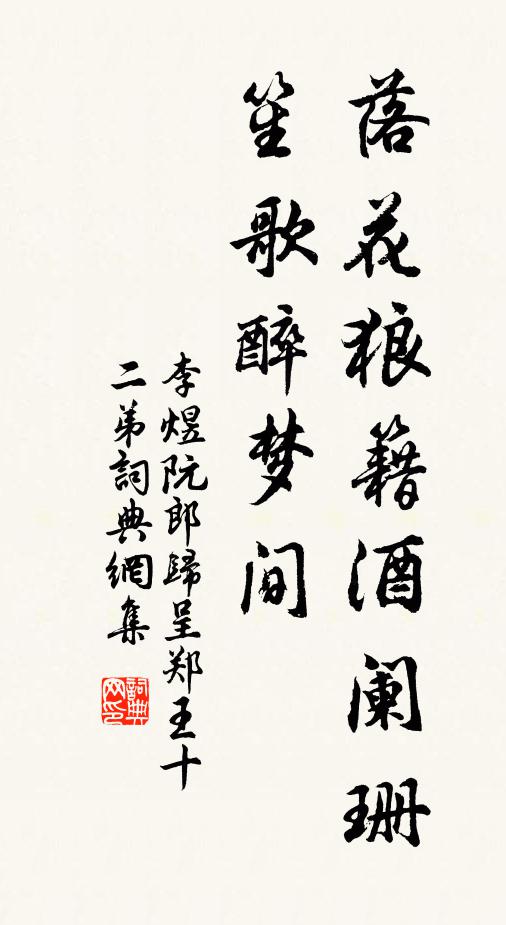 落花狼籍酒阑珊
笙歌醉梦间
李煜阮郎歸呈郑王十
二弟詞典網集
詞典
网印